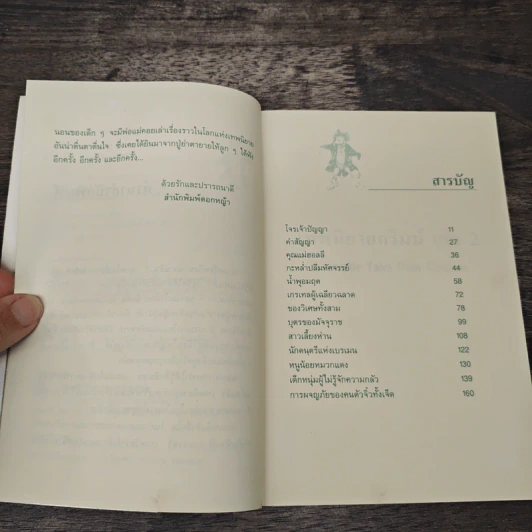 นอนของเด็ก ๆ จะมีพ่อแม่คอยเล่าเรื่องราวในโลกแห่งเทพนิยาย
อันน่าตื่นตาตื่นใจ ซึ่งเคยได้ยินมาจากปู่ย่าตายายให้ลูก ๆ ได้ฟัง
อีกครั้ง อีกครั้ง และอีกครั้ง...
ด้วยรักและปรารถนาดี
สำนักพิมพ์ดอกหญ้า
สารบัญ
โจรเจ้าปัญญา 11
คำสัญญา 27
คุณแม่ฮอลลี 36
กะหล่ำปลีมหัศจรรย์ 44
น้ำพุอมฤต 58
เกรเทลผู้เฉลียวฉลาด 72
ของวิเศษทั้งสาม 78
บุตรของมัจจุราช 99
สาวเลี้ยงห่าน 108
นักดนตรีแห่งเบรเมน 122
หนูน้อยหมวกแดง 130
เด็กหนุ่มผู้ไม่รู้จักความกลัว 139
การผจญภัยของคนตัวจิ๋วทั้งเจ็ด 160